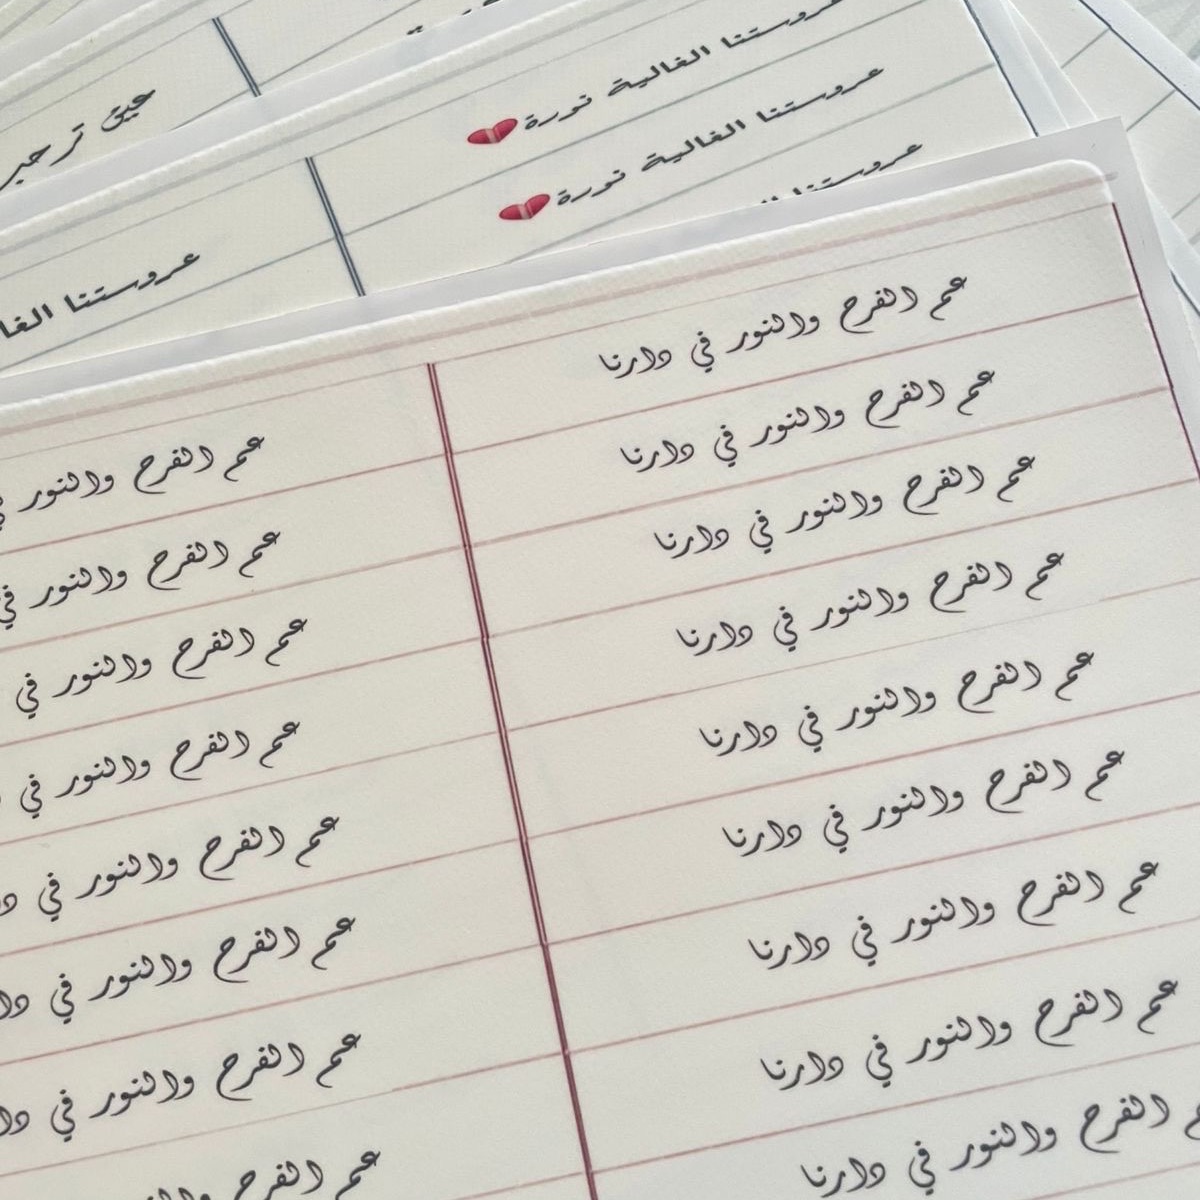 عروستنا الغالية نورة
عروستنا الغالية نورة
عروستنا
عروستنا
عم الفرح والنور في دارنا
عم الفرح والنور في دارنا
عم الفرح والنور في دارنا
عم الفرح والنور في دارنا
عم الفرح والنور في دارنا
عم الفرح والنور في دارنا
عم الفرح والنور في دارنا
عم الفرح والنور في دارنا
عم الفرح والنور في دارنا
عم الفرح والنور
عم الفرح والنور في
عم الفرح والنور في
عم الفرح والنور في
عم الفرح والنور في
عم الفرح والنور في
عم الفرح والنور في
عم الفرح